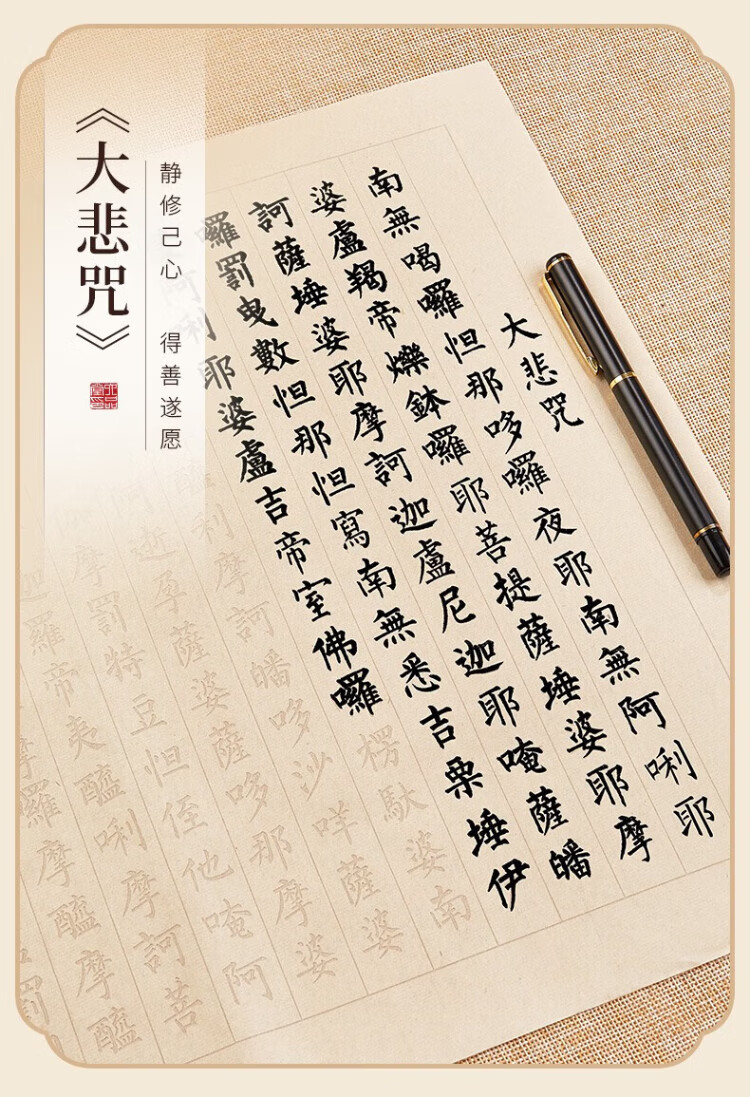 《大悲咒》
静修己心 得善遂愿
大悲咒
南無喝囉怛那哆囉夜耶南無阿唎耶
婆盧羯帝爍鉢囉耶菩提薩埵婆耶摩
訶薩埵婆耶摩訶迦盧尼迦耶唵薩皤
囉罰曳數怛那怛寫南無悉吉栗埵伊
阿唎耶婆盧吉帝室佛囉楞馱婆南
唎摩訶皤哆沙咩薩婆
逝孕薩婆薩哆那摩婆
摩罰特豆怛侄他唵阿
迦羅帝夷醯唎摩訶菩
摩羅摩醯摩醯
罰